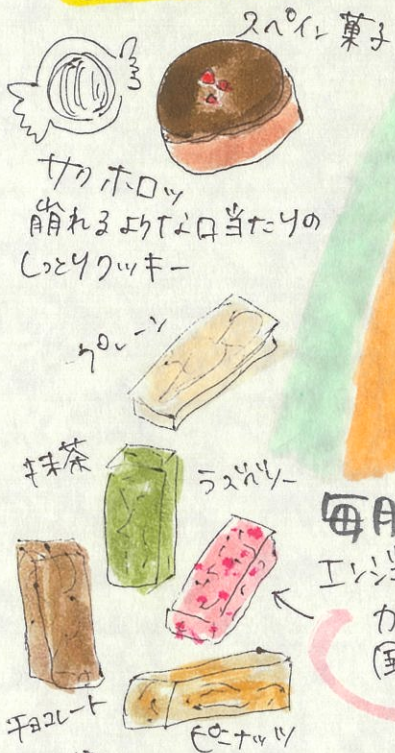 スペイン菓子
サクホロッ
崩れるような口当たりの
しっとりクッキー
プレーン
抹茶
ラズベリー
チョコレート
ピーナッツ
毎月
エンジ
カ